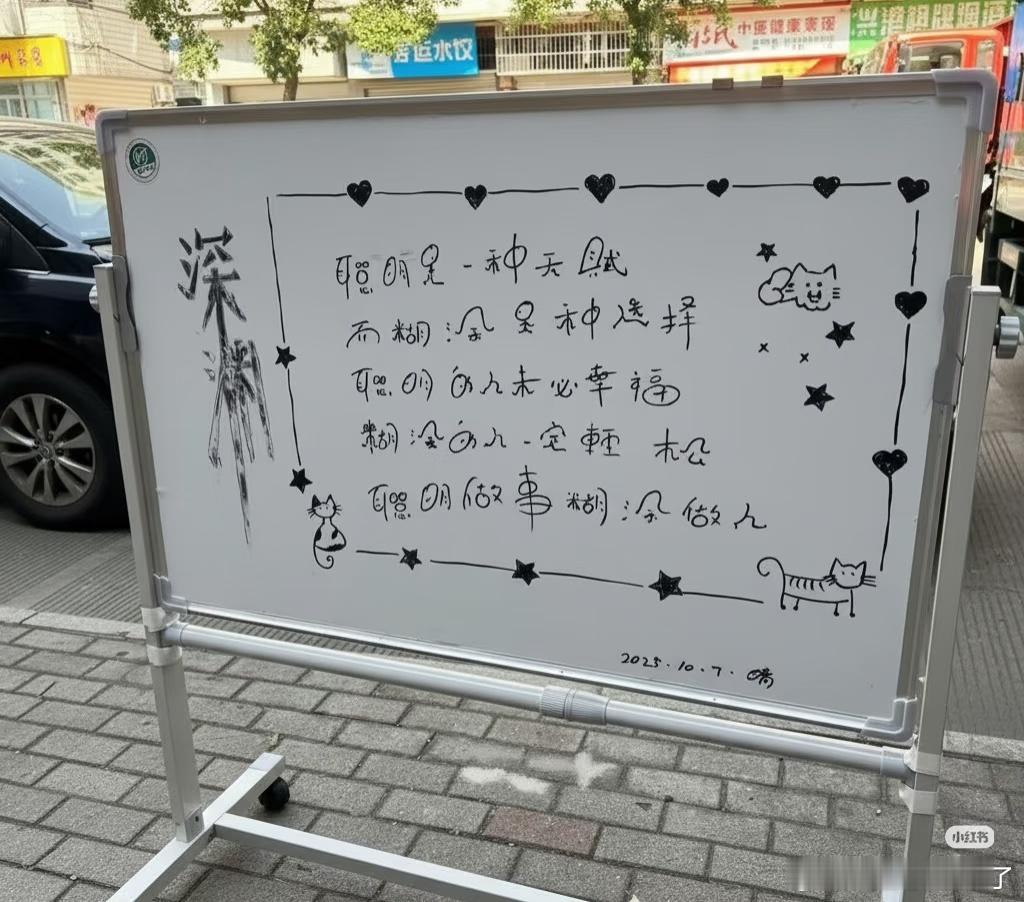 店运水饺
深渊
聪明是一种天赋
而糊涂是种选择
聪明的人未必幸福
糊涂的人一定輕松
聪明做事糊涂做人
2025.10.7.晴
小红书